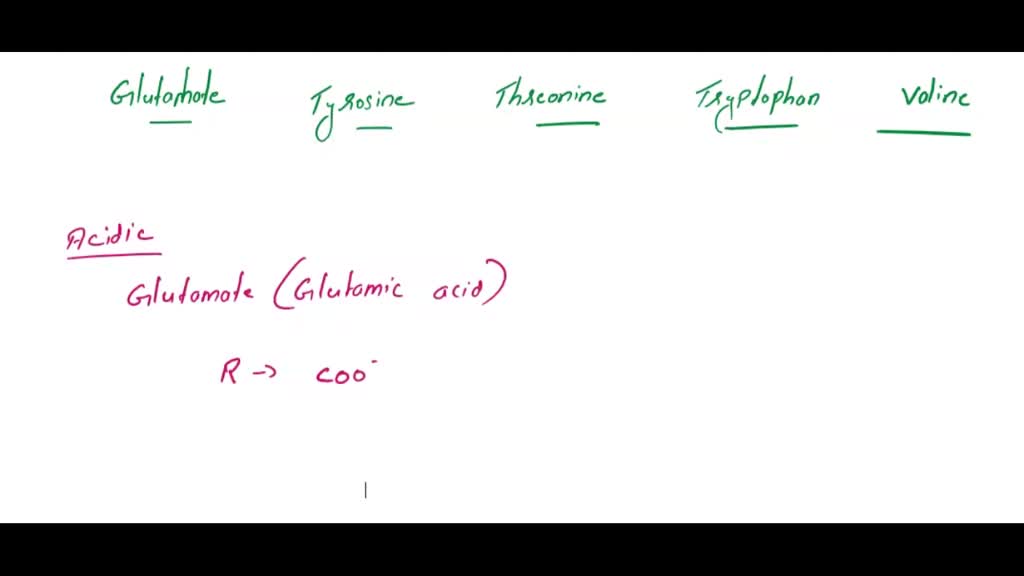 Glutamate Tyrosine Threonine Tryptophan Valine
Acidic
Glutamate (Glutamic acid)
R → COO⁻